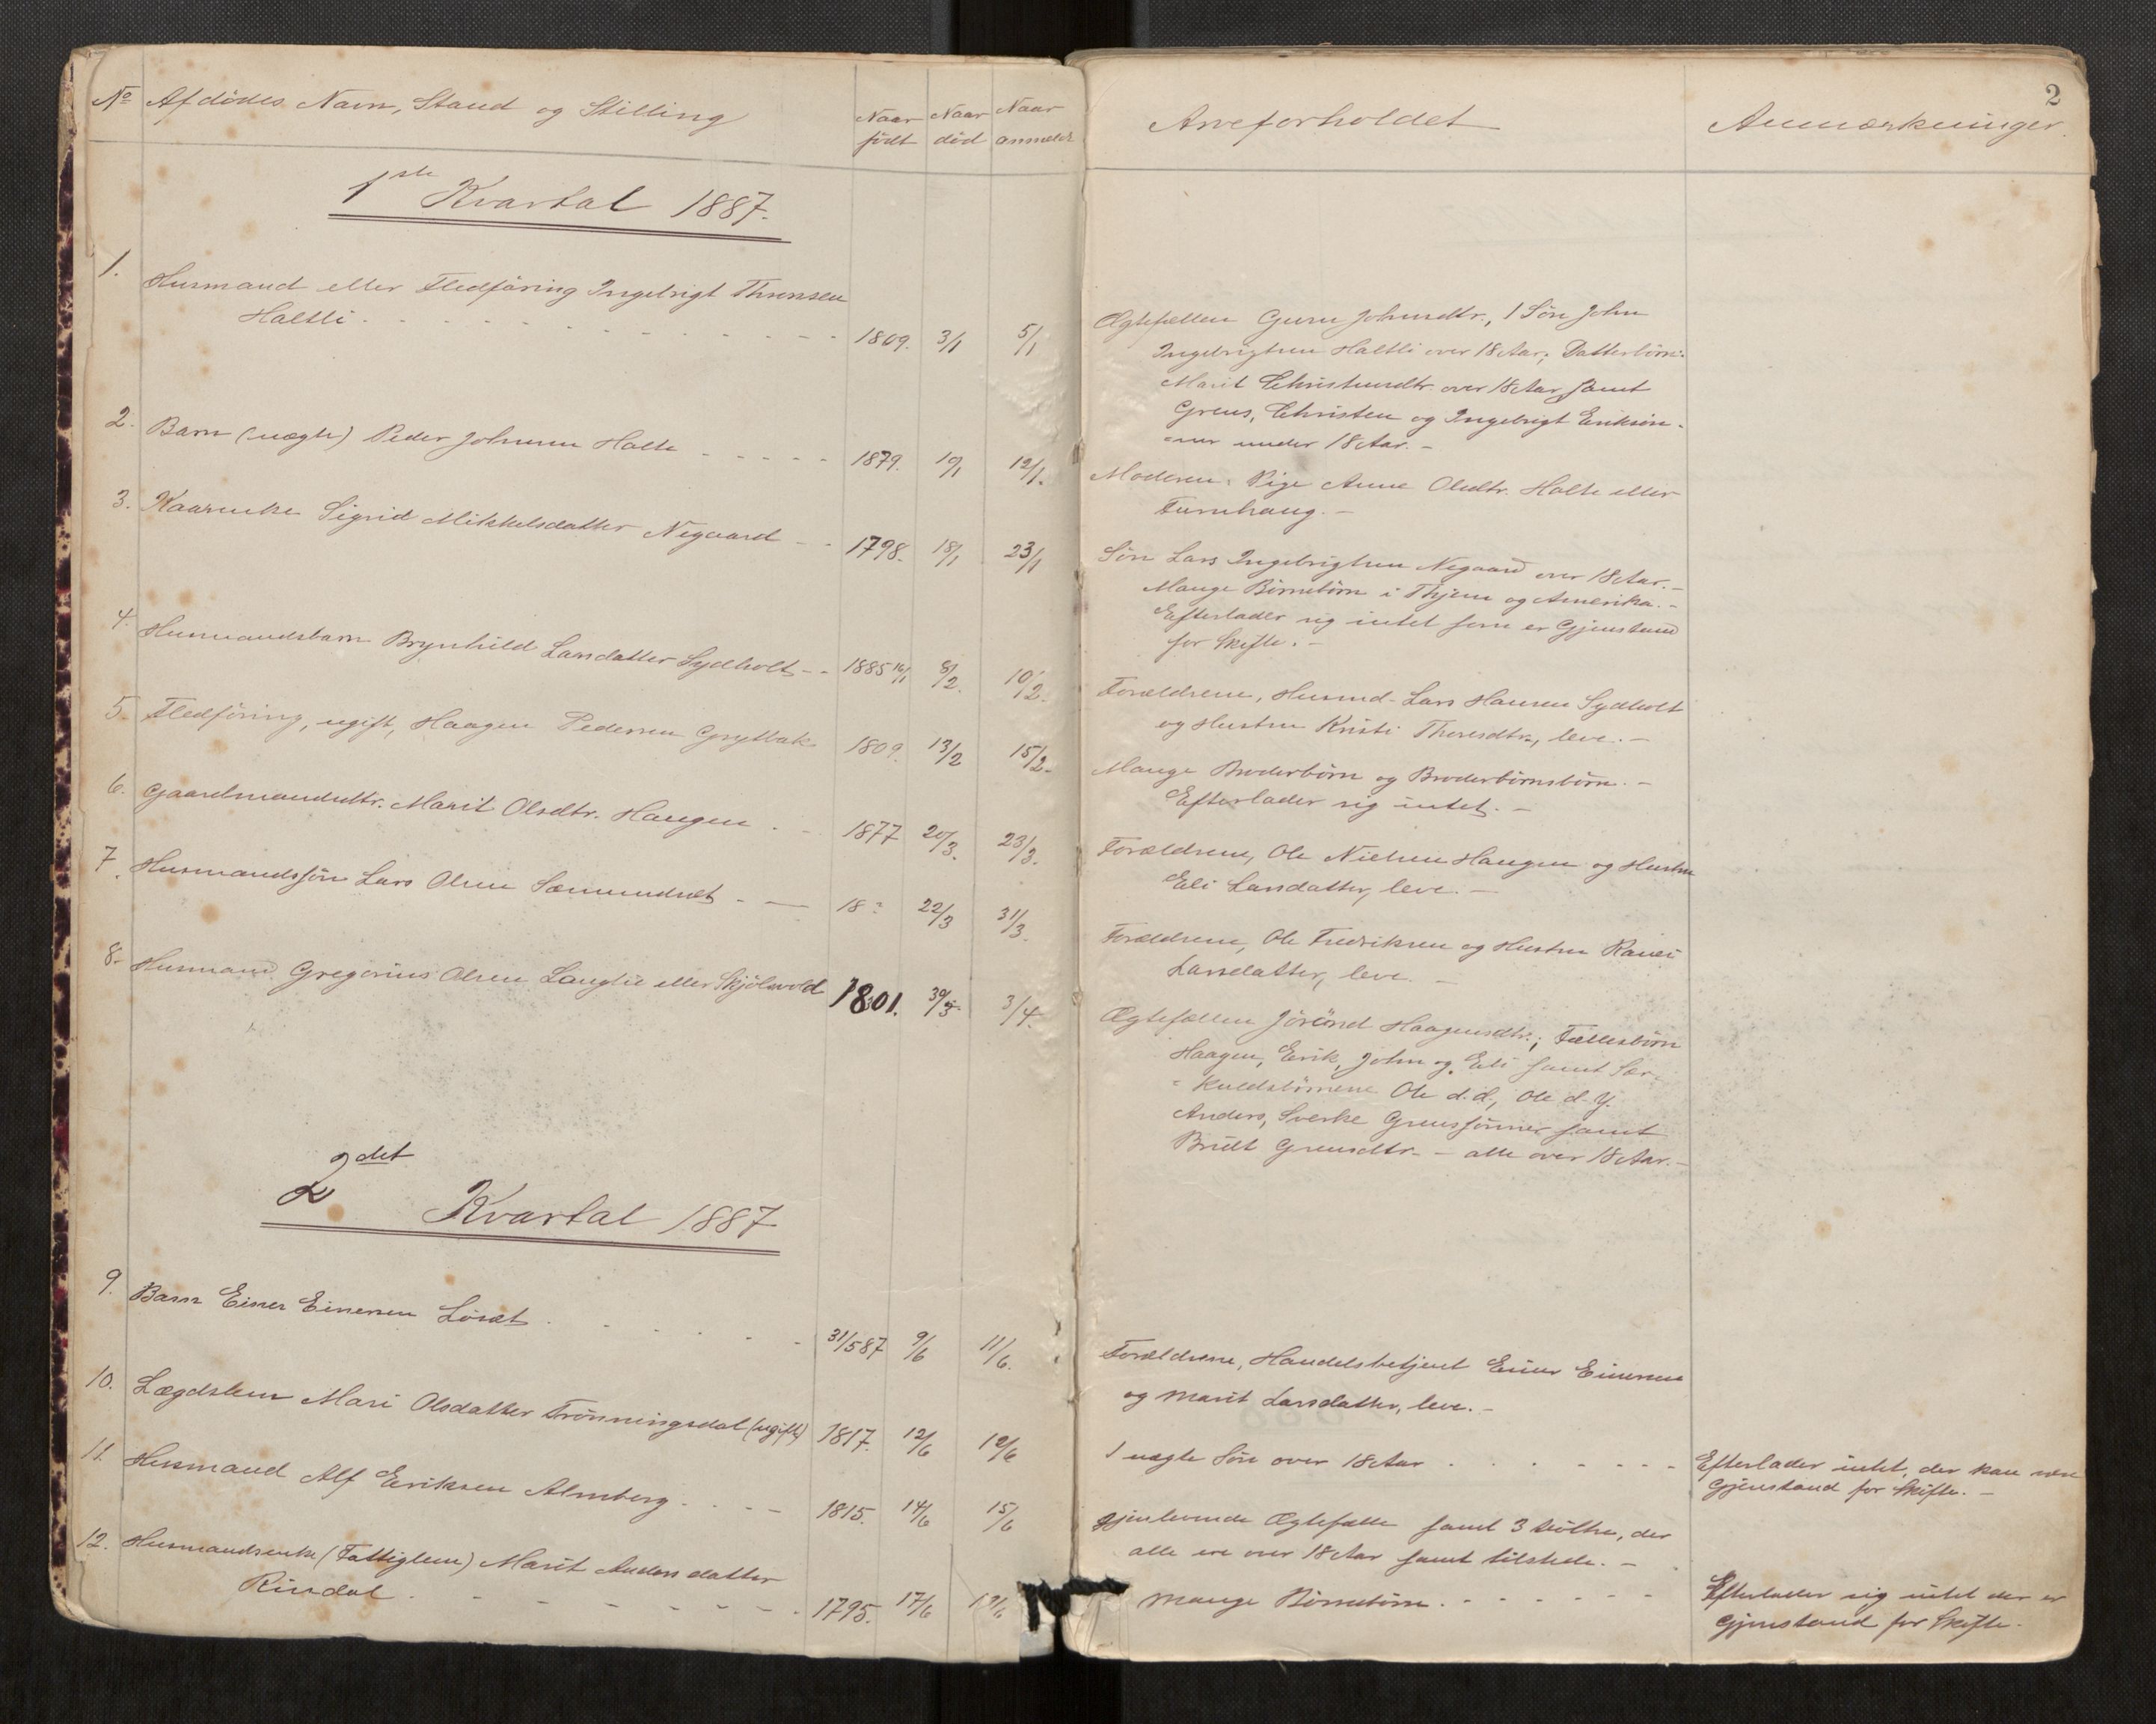 No Afdödes Navn, Stand og Stilling
Naar født
Naar död
Naar anmeldt
1ste Kvartal 1887.
1. Husmand eller Fledföring Ingebrigt Thoresen
Haltli 1809. 3/1 5/1
2. Barn (uægte) Peder Johnsen Holte 1879. 10/1 12/1.
3. Kaarenke Sigrid Mikkelsdatter Negaard 1798. 18/1 23/1
4. Husmandsbarn Brynhild Larsdatter Sydholt 1885 16/1 8/2. 10/2.
5. Fledföring, ugift, Haagen Pedersen Grytbak 1809. 13/2 15/2.
6. Gaardmandsdtr. Marit Olsdtr. Haugen 1877 20/3. 23/3.
7. Husmandssön Lars Olsen 18 22/3 31/3.
8. Husmand Gregorius Olsen Langlie eller Skjölsvold 1801. 30/3 3/4.
2det
Kvartal 1887
9. Barn Einer Einersen Löset 31/5 87 9/6 11/6.
10. Lægdslem Mari Olsdatter Trönningsdal (ugift) 1817. 12/6 12/6
11. Husmand Alf Eriksen Almberg 1815. 14/6 15/6
12. Husmandsenke (Fattiglem) Marit Andersdatter
Rindal 1795. 17/6
2
Arveforholdet
Anmærkninger.
Ægtefællen Guru Johnsdtr., 1 Sön John
Ingebrigtsen Haltli over 18 Aar; Datterbörn:
Marit Christensdtr. over 18 Aar samt
Greus, Christen og Ingebrigt Eriksön-
-ner under 18 Aar. -
Moderen: Pige Anne Olsdtr. Holte eller
Furuhaug. -
Sön Lars Ingebrigtsen Negaard over 18 Aar. -
Mange Börnebörn i Thjem og Amerika. -
Efterlader sig intet som er Gjenstand
for Skifte. -
Forældrene, Husmd. Lars Hansen Sydholt
og Hustru Kristi Thoresdtr., leve. -
Mange Broderbörn og Broderbörnsbörn. -
Efterlader sig intet. -
Forældrene, Ole Nielsen Haugen og Hustru
Eli Larsdatter, leve. -
Forældrene, Ole Fredriksen og Hustru
Larsdatter, leve. -
Ægtefællen Jörönd Haagensdtr.; Fællesbörn
Haagen, Erik, John og Eli samt Sær-
-kuldsbörnene Ole d.æ., Ole d.y.
Anders, Sverke Greussönner samt
Bridt Greusdtr. - alle over 18 Aar. -
Forældrene, Handelsbetjent Einer Einersen
og Marit Larsdatter, leve. -
1 uægte Sön over 18 Aar
Efterlader intet, der kan være
Gjenstand for Skifte. -
Gjenlevende Ægtefælle samt 3 Döttre, der
alle ere over 18 Aar samt tilstede. -
Mange Börnebörn.
Efterlader sig intet der er
Gjenstand for Skifte.